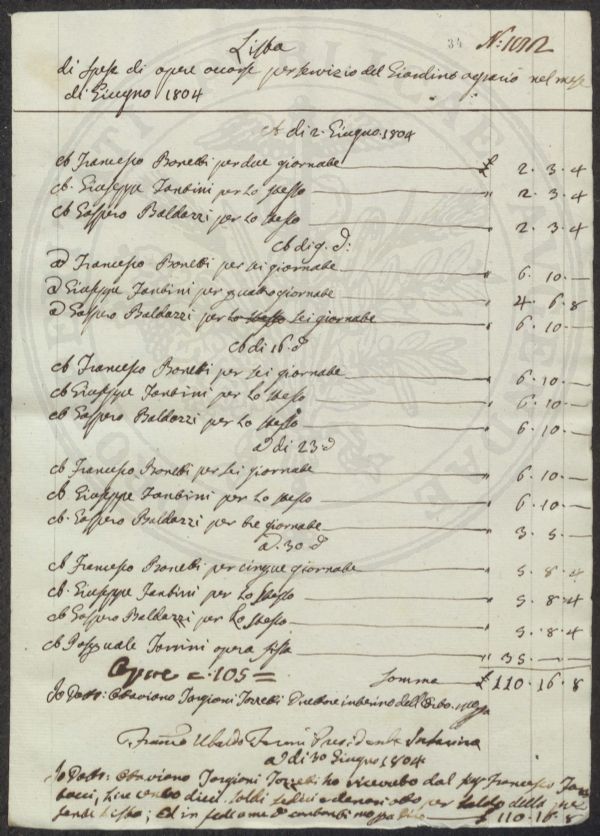 34 N: 1012
Lista
di spese di opere occorse per servizio del Giardino agrario nel mese
di Giugno 1804
A di 2. Giugno 1804
A Francesco Bonetti per due giornate £ 2. 3. 4
A Giuseppe Fantini per Lo stesso " 2. 3. 4
A Gaspero Baldazzi per Lo stesso " 2. 3. 4
A di 9. d:
A Francesco Bonetti per sei giornate " 6. 10. —
A Giuseppe Fantini per quattro giornate " 4. 6. 8
A Gaspero Baldazzi per Lo stesso sei giornate " 6. 10. —
A di 16. d
A Francesco Bonetti per sei giornate " 6. 10. —
A Giuseppe Fantini per Lo stesso " 6. 10. —
A Gaspero Baldazzi per Lo stesso " 6. 10. —
A di 23 d
A Francesco Bonetti per sei giornate " 6. 10. —
A Giuseppe Fantini per Lo stesso " 6. 10. —
A Gaspero Baldazzi per tre giornate " 3. 5. —
A. 30. d
A Francesco Bonetti per cinque giornate " 5. 8. 4
A Giuseppe Fantini per Lo stesso " 5. 8. 4
A Gaspero Baldazzi per Lo stesso " 5. 8. 4
A Pasquale Torrini opera fissa " 35. — —
Opere = 105 = Somma £ 110. 16. 8
Io Dott: Ottaviano Targioni Tozzetti Direttore interino dell'Orto
Franco Ubaldo Feroni Presidente
A di 30 Giugno 1804
Io Dott: Ottaviano Targioni Tozzetti ho ricevuto dal Francesco
Lire cento dieci soldi sedici e denari otto per saldo della
Lista; ed in fede mano £ 110. 16. 8